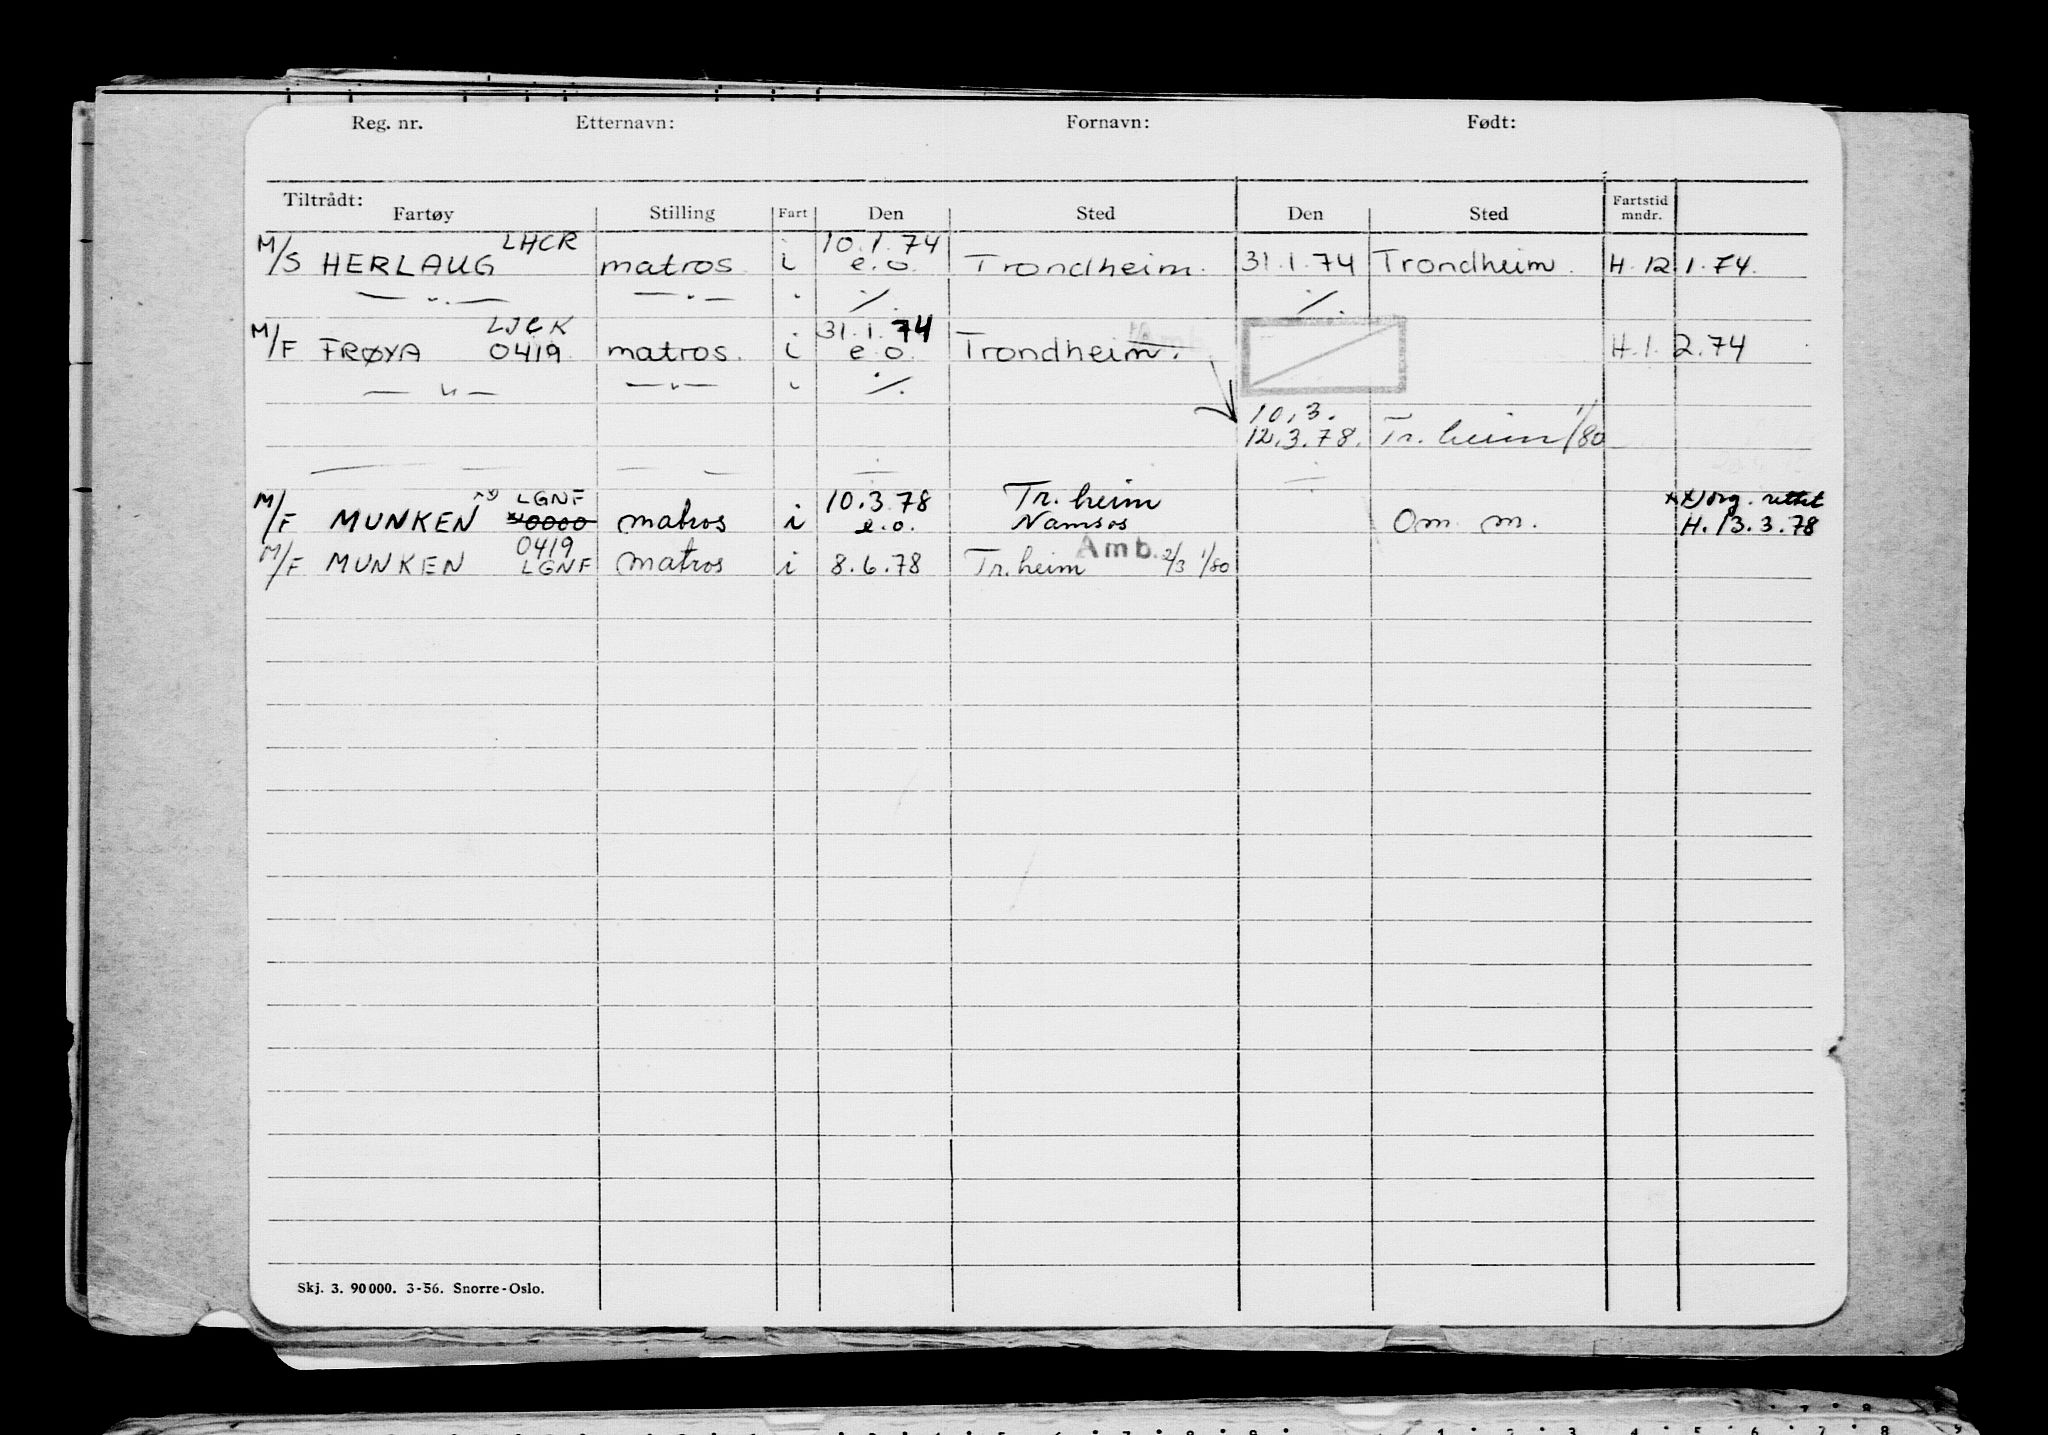 Reg. nr. Etternavn: Fornavn: Født:
Tiltrådt:
Fartøy Stilling Fart Den Sted Den Sted Fartstid mndr.
LHCR 10.1.74
M/S HERLAUG matros i e.o. Trondheim. 31.1.74 Trondheim. H. 12 1.74.
— " — — " — " ./. ./.
LJCK 31.1.74
M/F FRØYA 0419 matros. i e.o. Trondheim. H. 1. 2.74
— " — — " — " ./.
10.3.
12.3.78. Tr. heim 1/80
M/F LGNF 10.3.78 Tr. heim
MUNKEN 0000 matros i e.o. Namsos Om. m. H. 13.3.78
0419 Amb.
M/F MUNKEN LGNF matros i 8.6.78 Tr. heim 2/3 1/80
Skj. 3. 90000. 3-56. Snorre-Oslo.